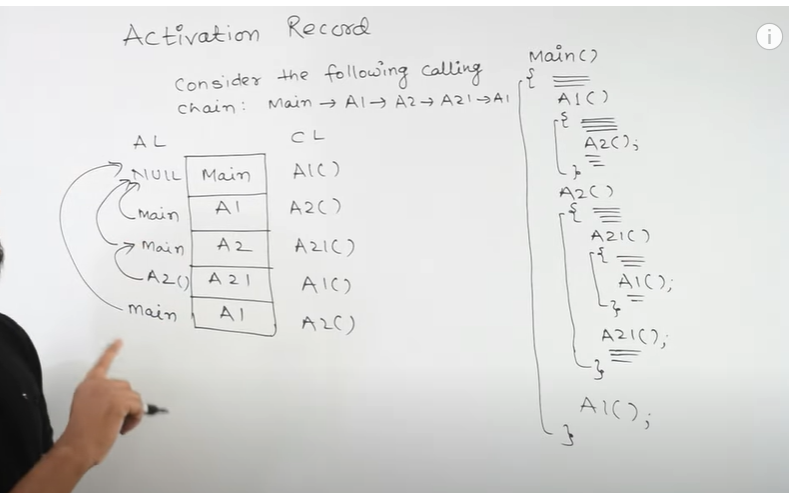 Activation Record
Consider the following calling
chain: Main → A1 → A2 → A21 → A1
AL CL
NULL Main A1()
Main A1 A2()
Main A2 A21()
A2() A21 A1()
Main A1 A2()
Main()
{
A1()
{
A2();
}
A2()
{
A21()
{
A1();
}
A21();
}
A1();
}
i